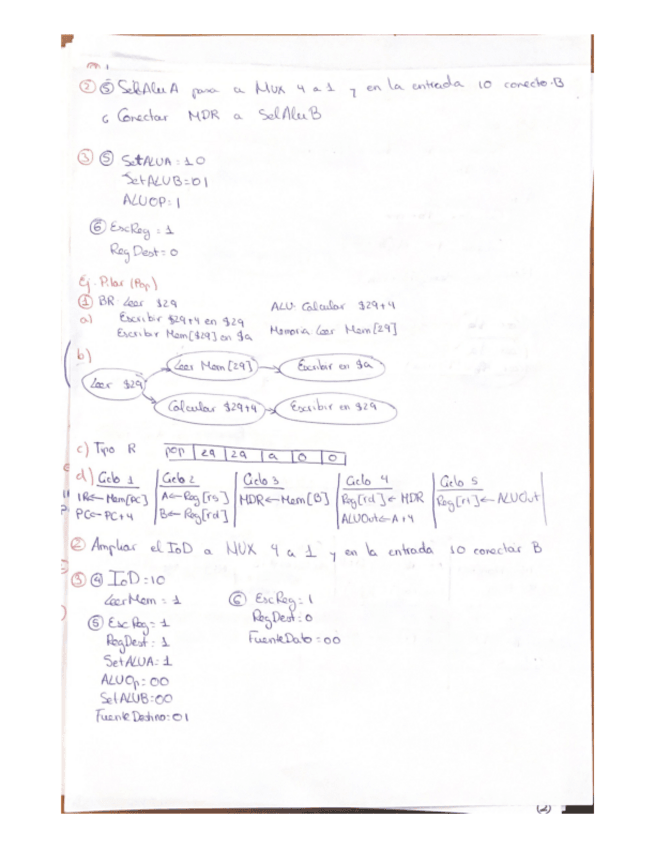 ② ⑤ SelAluA pasa a Mux 4 a 1 y en la entrada 10 conecto B
6 Conectar MDR a SelAluB
③ ⑤ SetALUA: 10
SetALUB=01
ALUOP: 1
⑥ EscReg = 1
RegDest: 0
Ej. Pilar (Pop)
① BR: Leer $29 ALU: Calcular $29+4
a) Escribir $29+4 en $29
Escribir Mem[$29] en $a Memoria: Leer Mem[29]
b)
Leer Mem[29] → Escribir en $a
Leer $29
Calcular $29+4 → Escribir en $29
c) Tipo R pop | 29 | 29 | a | 0 | 0
d) Ciclo 1 | Ciclo 2 | Ciclo 3 | Ciclo 4 | Ciclo 5
IR←Mem[PC] | A←Reg[rs] | MDR←Mem[B] | Reg[rd]←MDR | Reg[rt]←ALUOut
PC←PC+4 | B←Reg[rd] | ALUOut←A+4
② Ampliar el IoD a MUX 4 a 1 y en la entrada 10 conectar B
③ ④ IoD=10
LeerMem = 1
⑤ EscReg = 1
RegDest: 1
SetALUA: 1
ALUOp: 00
SetALUB=00
Fuente Destino: 01
⑥ EscReg: 1
RegDest: 0
FuenteDato: 00
(2)